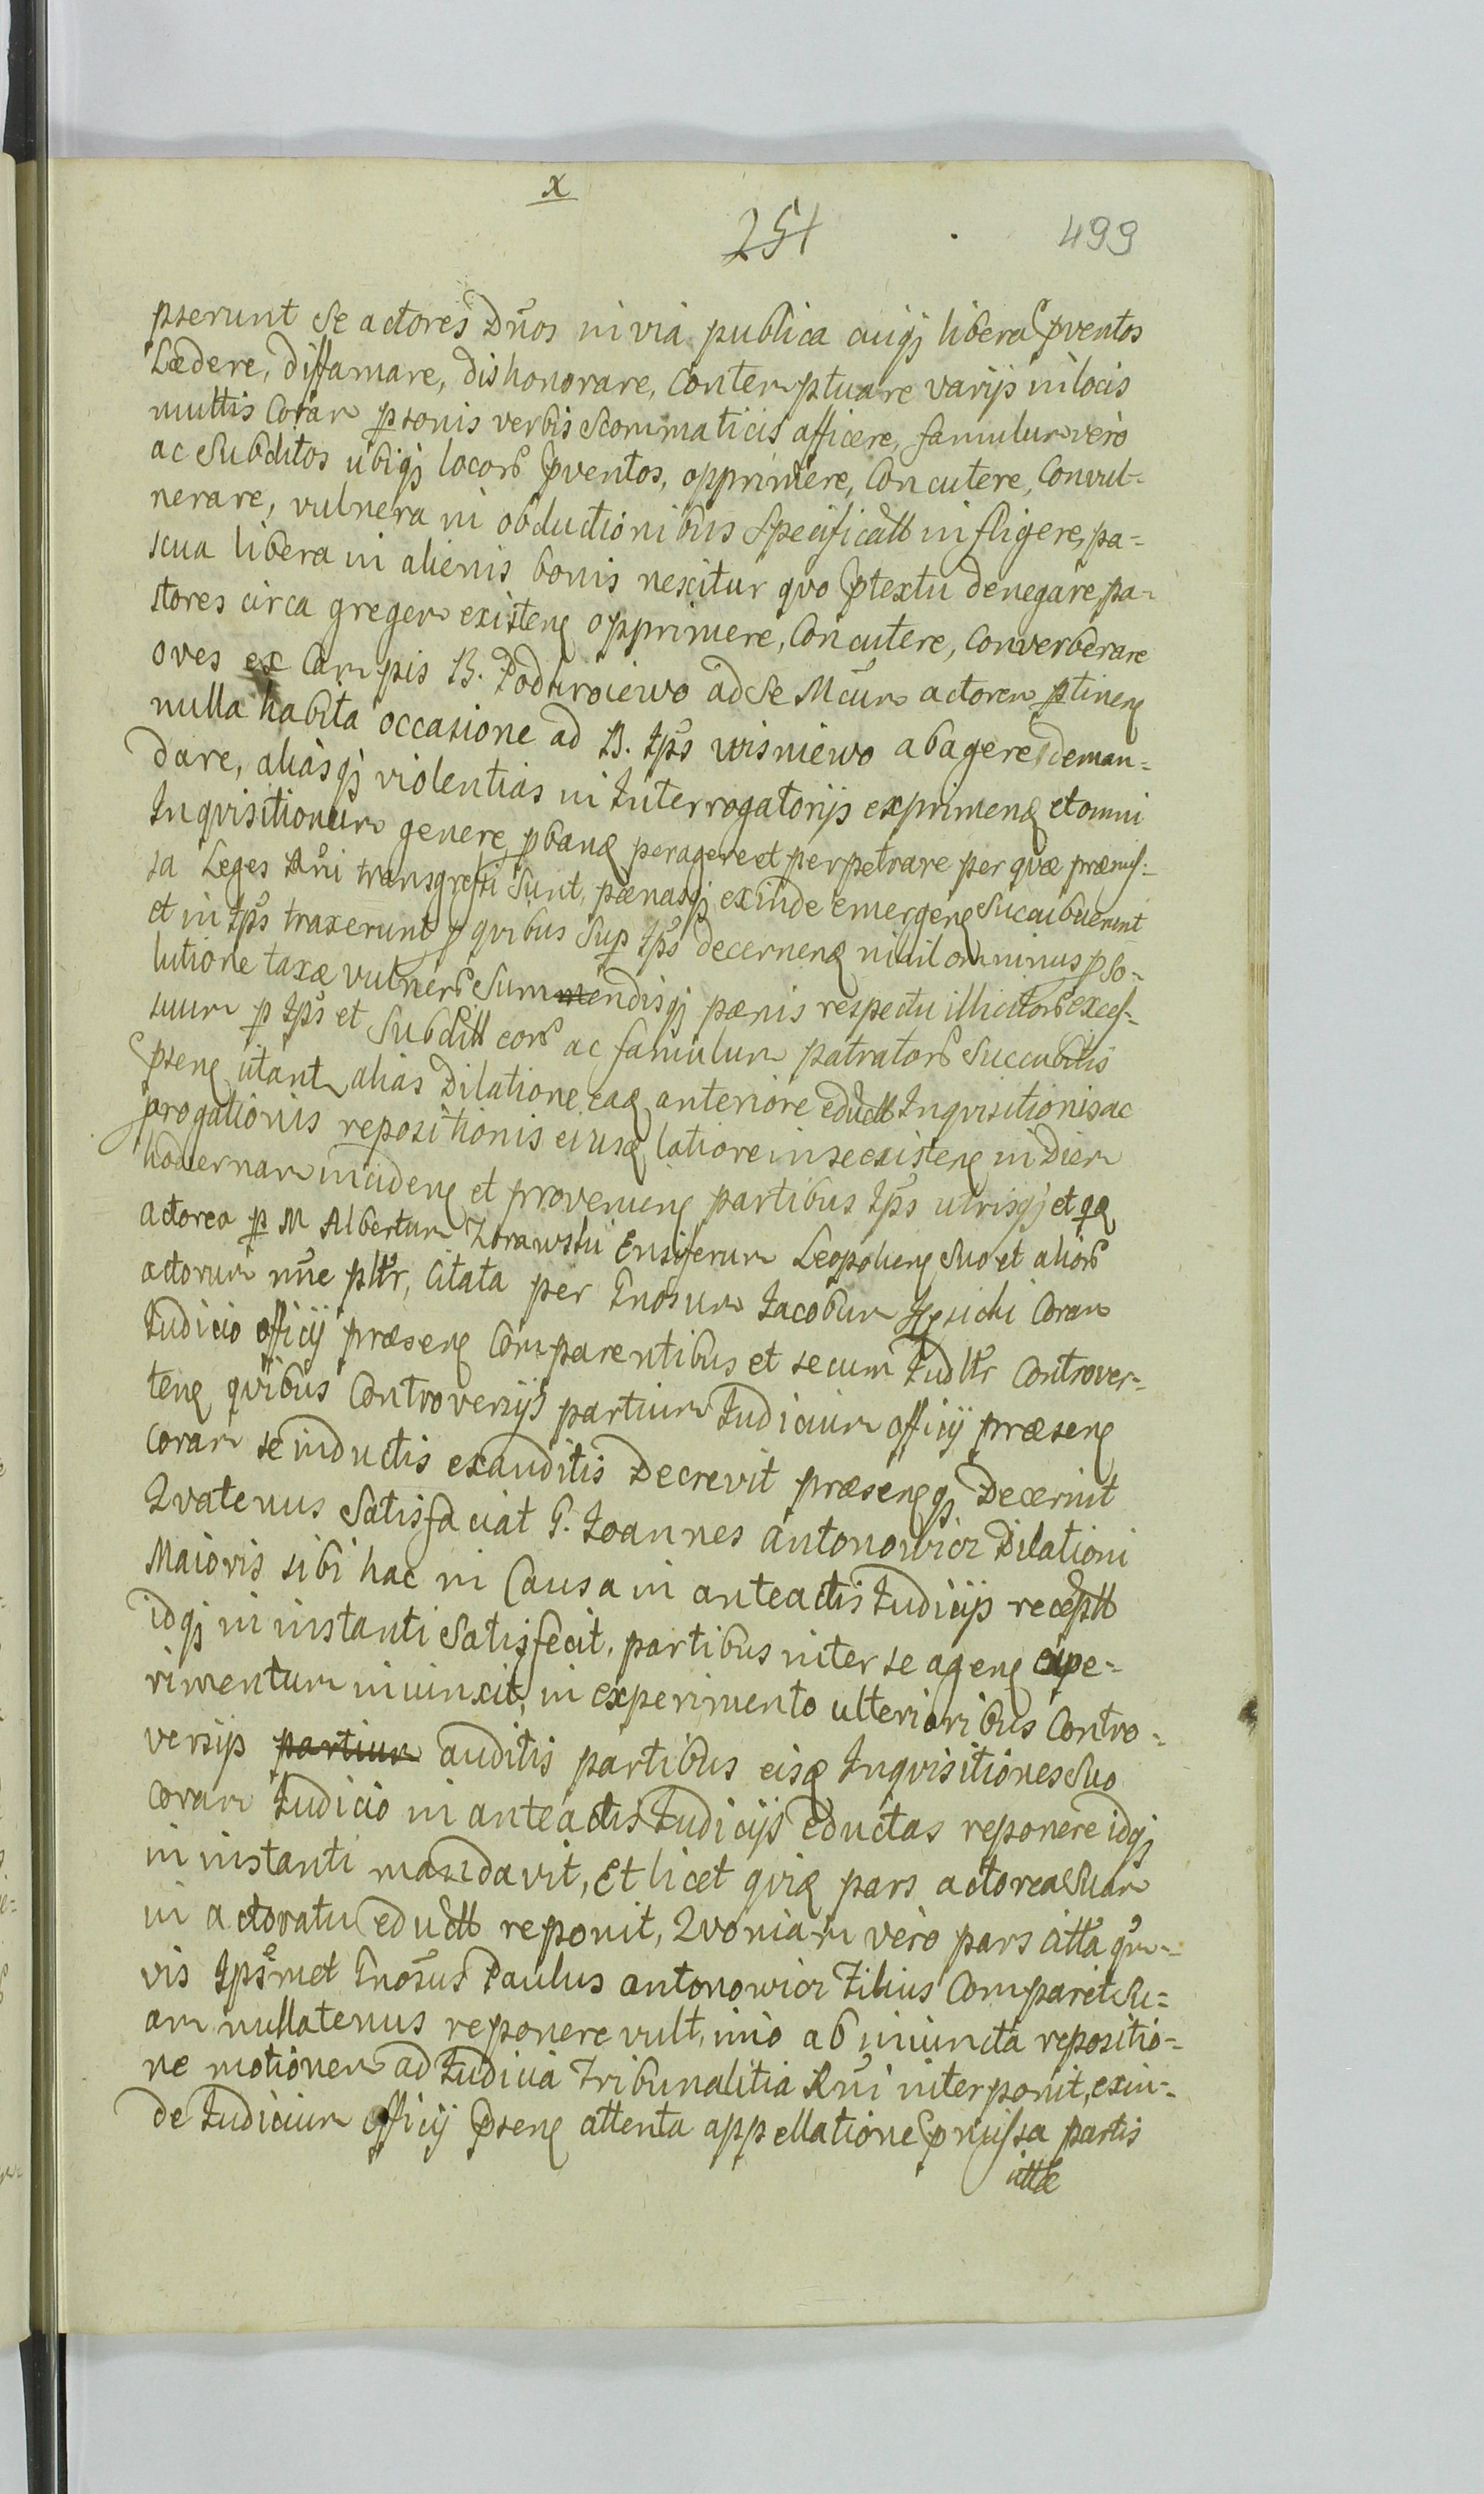 x
251
499
pserunt se actores Dnos in via publica cuiqȝ libera pventos
Lædere, diffamare, dishonorare, Contemptuare varijs in locis
multis Coram psonis verbis Scommaticis afficere, famulum vero
ac Subditos ubiqȝ locorū pventos, opprimere, Concutere, Convul=
nerare, vulnera in obductionibus Specificatt infligere, pa=
scua libera in alienis bonis nescitur quo ptextu denegare pa=
stores circa gregem existenȝ opprimere, Concutere, Converberare
oves ex Campis B. Podurowo ad se Mcum actorem ptinenȝ
nulla habita occasione ad B. Ipš wisniewo abagere deman=
dare, aliasqȝ violentias in Interrogatorijs exprimenȝ et omni
Inqvisitionum genere pbanȝ peragere et perpetrare per qvæ præmiſ=
sa Leges Rni transgressi Sunt, pænasqȝ exinde emergenȝ Succubuerunt
et in Ipš traxerunt p qvibus Sup Ipš decernenȝ nihilominus p so=
lutione taxæ vulnerū Summendisqȝ pænis respectu illicitorū exceſ=
suum p Ipš et Subditt eorū ac famulum patratorū Succubitis
psenȝ citant, alias Dilatione eaȝ anteriore eductt Inqvisitionis ac
progationis repositionis eiusȝ latiore in se existenȝ in Diem
hodiernam incidenȝ et provenienȝ partibus Ipš utrisqȝ et qȝ
actorea p M Albertum Zorawski Ensiferum Leopolienȝ Suo et aliorū
actorum nne pltr, Citata per Gnosum Jacobum Coram
Judicio officij præsenȝ Comparentibus et secum Judltr Controver=
tenȝ qvibus Controversijs partium Judicium officij præsenȝ
Coram se inductis exauditis Decrevit præsenȝqȝ Decernit
Qvatenus Satisfaciat G. Joannes antonowicz Dilationi
Maioris sibi hac in Causa in anteactis Judicijs receptt
idqȝ in instanti Satisfecit, partibus inter se agenȝ expe=
rimentum iniunxit, in experimento ulterioribus Contro=
versijs partium auditis partibus eisȝ Inqvisitiones Suo
Coram Judicio in anteactis Judicijs eductas reponere idqȝ
in instanti mandavit, Et licet qviȝ pars actorea Suam
in actoratu eductt reponit, Qvoniam vero pars citta qm=
vis Ipsemet Gnosus Paulus antonowicz Filius Comparet Su=
am nullatenus reponere vult, imo ab iniuncta repositio=
ne motionem ad Judicia Tribunalitia Rni interponit, exin=
de Judicium officij psenȝ attenta appellatione pmissa partis
cittæ